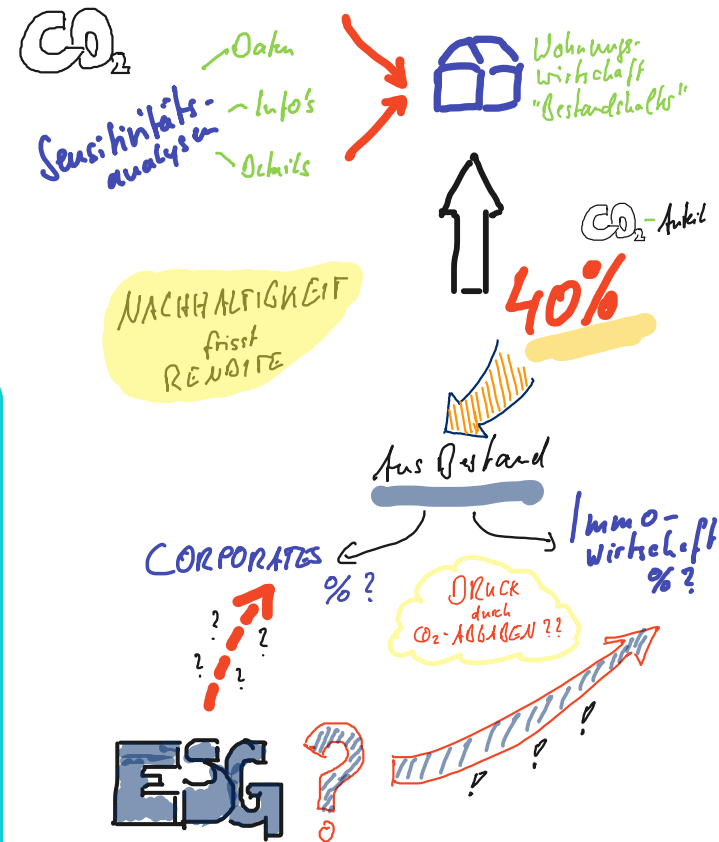 CO₂
Sensitivitäts-
analysen
Daten
Info's
Details
Wohnungs-
wirtschaft
"Bestandshalter"
CO₂-Anteil
40%
NACHHALTIGKEIT
frisst
RENDITE
Aus Bestand
CORPORATES
% ?
Immo-
wirtschaft
% ?
DRUCK
durch
CO₂-ABGABEN ??
? ? ? ?
ESG ?
! ! !